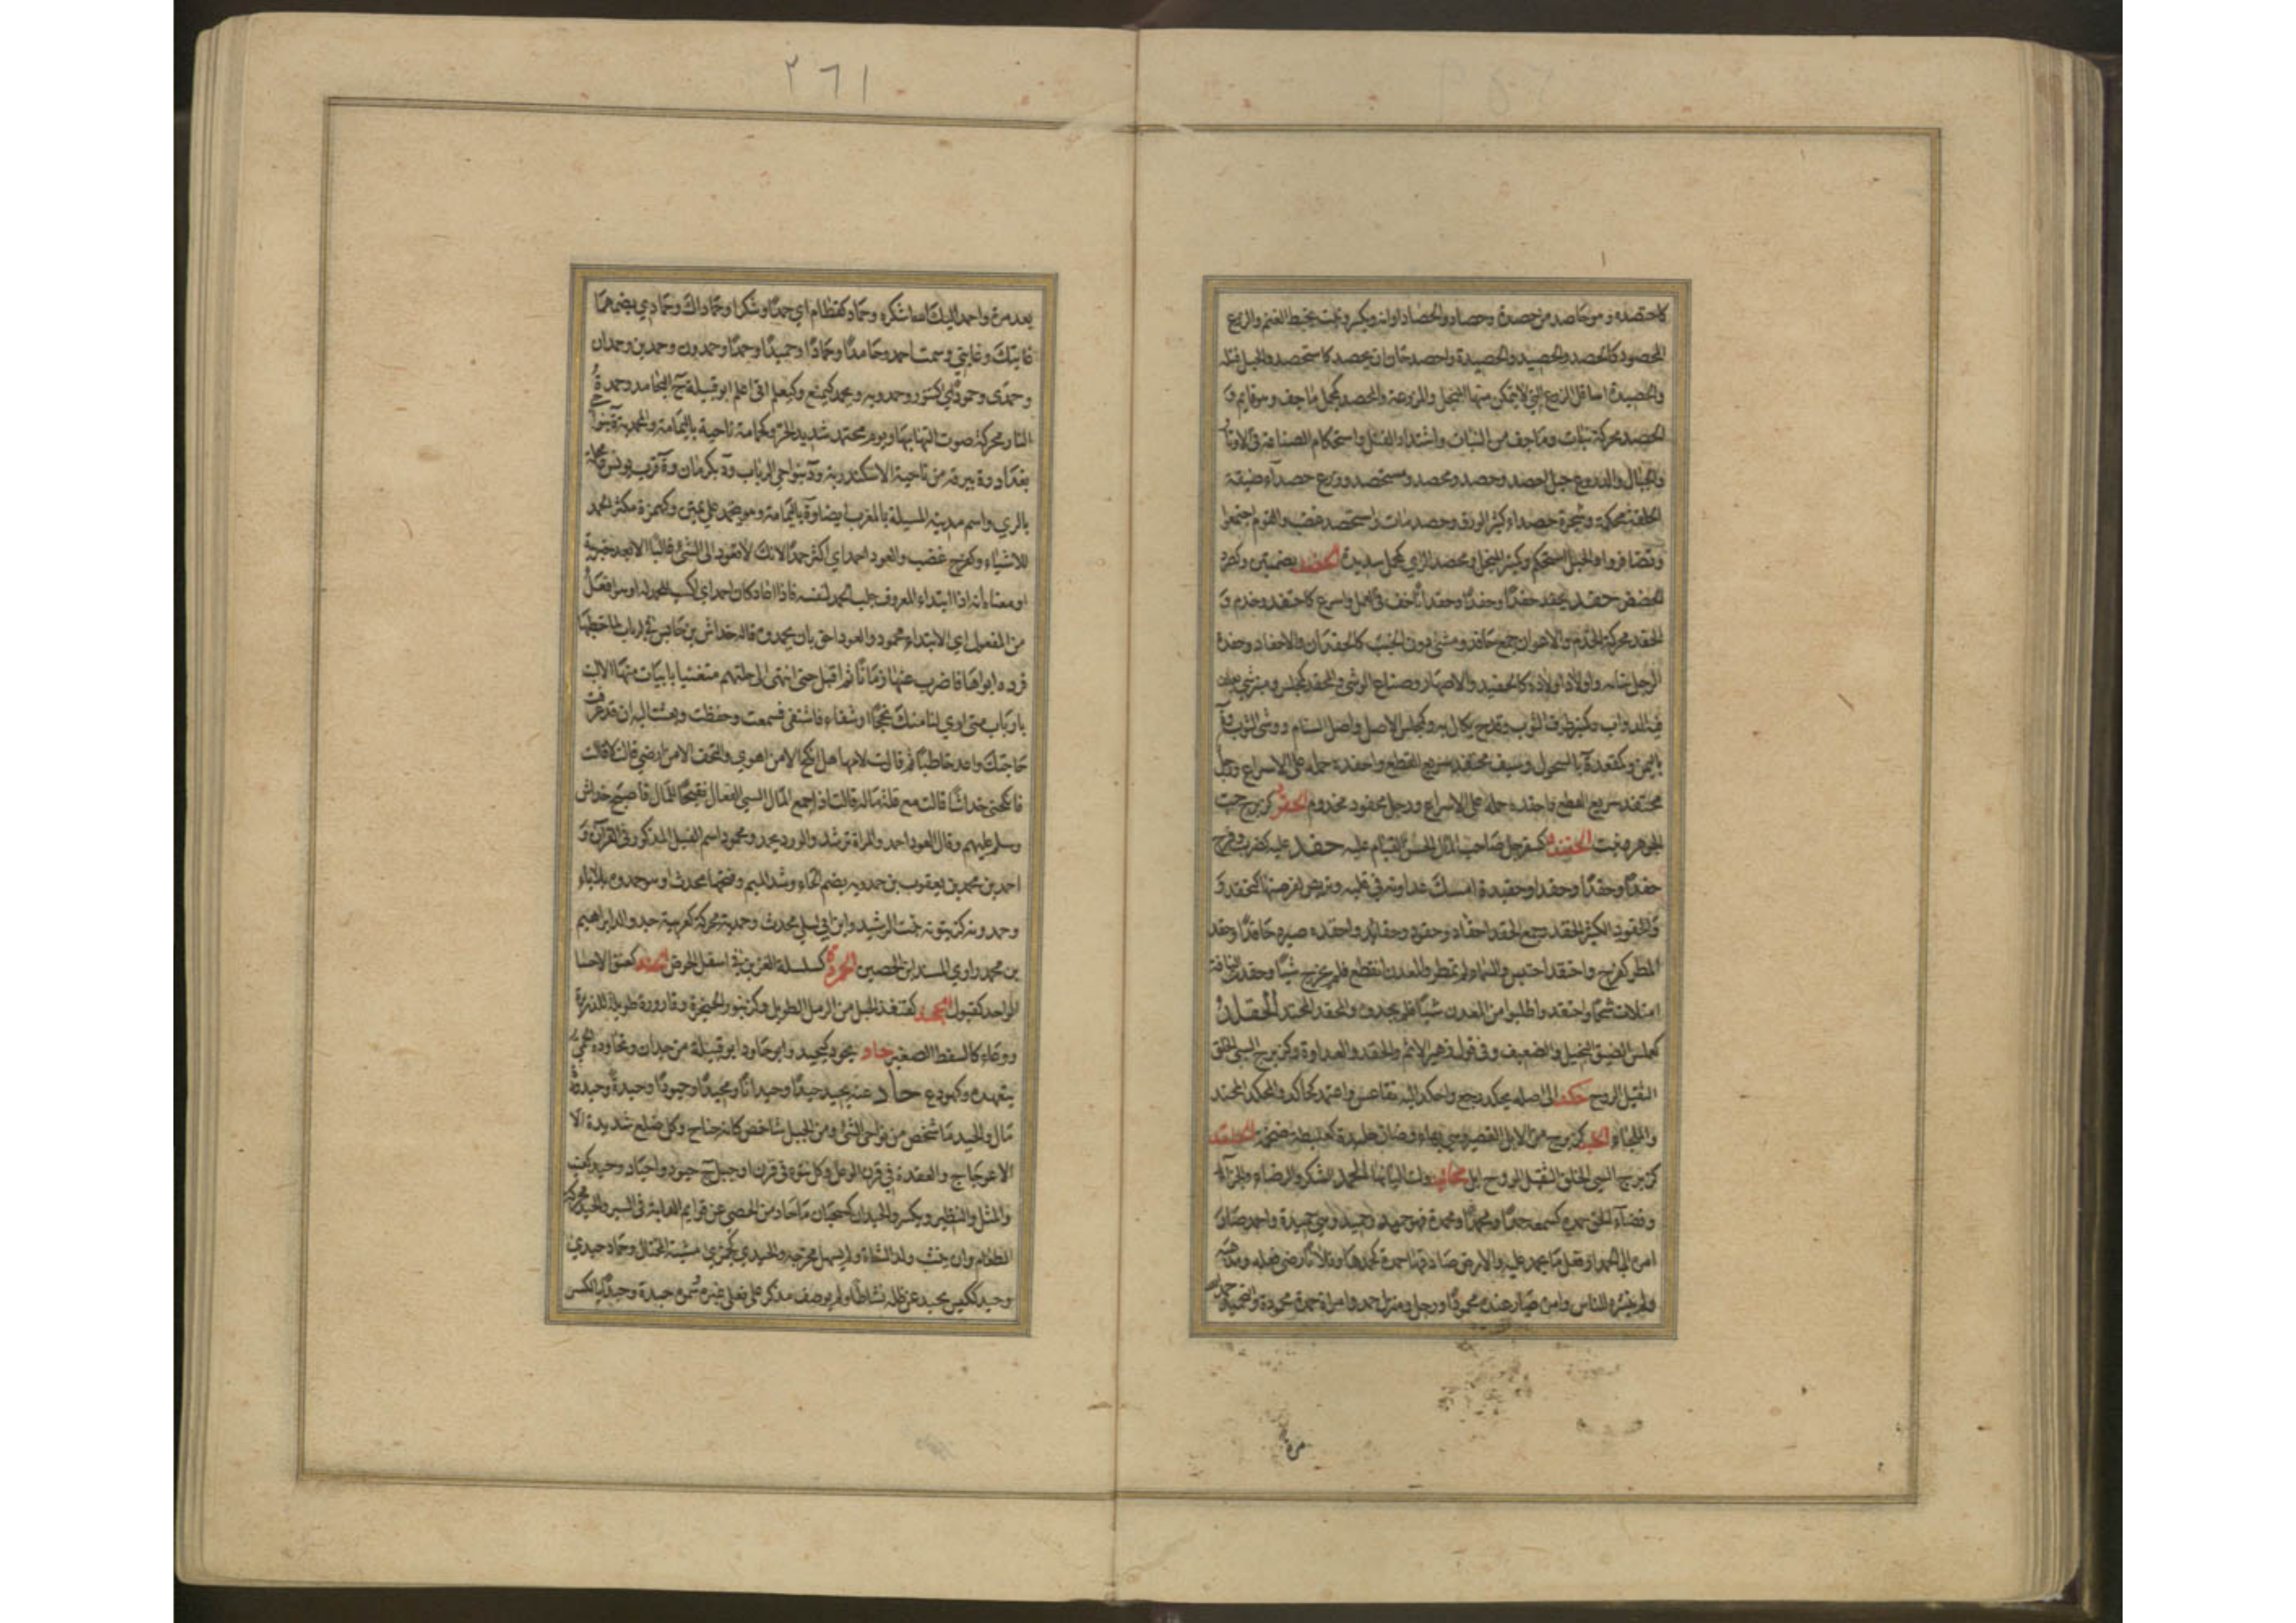 كاحتصده وهو حاصد من حصدة وحصاد والحصاد اوانه ويكسر ونبت يخبط الغنم والزرع
المحصود كالحصد والحصيد والحصيدة واحصد حان ان يحصد كاستحصد والحبل فتله
والحصيدة اسافل الزرع التي لا يتمكن منها المنجل والمزرعة والمحصد كمجمل ما جف وهو قايم و
الحصد محركة نبات وما جف من النبات واشتداد الفتل واستحكام الصناعة في الاوتار
والحبال والدروع حبل احصد وحصد ومحصد ومستحصد ودرع حصداء ضيقة
الحلقة محكمة وشجرة حصداء كثيرة الورق وحصد مات واستحصد غضب والقوم اجتمعوا
وتضافروا والحبل استحكم وكمنبر المنجل ومحصد الراي كمجمل سديده الحضد بضمتين وكصرد
الحضض حفد يحفد حفدا وحفدا وحفدانا خف في العمل واسرع كاحتفد وخدم و
الحفد محركة الخدم والاعوان جمع حافد ومشي دون الخبب كالحفدان والاحفاد وحفدة
الرجل بناته واولاد اولاده كالحفيد والاصهار وصناع الوشي والمحفد كمجلس ومنبر شي يعلف
فيه الدواب وكمنبر طرف الثوب وقدح يكال به وكمجلس الاصل واصل السنام ووشي الثوب وة
باليمن وكمقعد ة بالسحول وسيف محتفد سريع القطع واحفده حمله على الاسراع ورجل
محتفد سريع القطع واحفده حمله على الاسراع ورجل محفود مخدوم الحفرد كزبرج حب
الجوهر ونبت الحفندد كسفرجل صاحب المال الحسن القيام عليه حقد عليه كضرب وفرح
حقدا وحقدا وحقدا وحقيدة امسك عداوته في قلبه وتربص لفرصتها كتحقد و
والحقود الكثير الحقد وجمع الحقد احقاد وحقود وحقائد واحقده صيره حاقدا وحقد
المطر كفرح واحتقد احتبس والسماء لم تمطر والمعدن انقطع فلم يخرج شيا وحقدت الناقة
امتلات شحما واحتقدوا طلبوا من المعدن شيا فلم يجدوه والمحقد المحتد الحقلد
كعملس الضيق البخيل والضعيف وفي قول زهير الاثم والحقد والعداوة وكزبرج السيئ الخلق
الثقيل الروح حكد الى اصله يحكد رجع واحكد اليه تقاعس واعتمد كحاكد والمحكد المحتد
والملجاء كزبرج من الابل القصير وهي بهاء وضان حلبدة كعلبطة ضخمة الحلقد
كزبرج السيئ الخلق الثقيل الروح ابل محاليد ولت البانها الحمد الشكر والرضاء والجزاء
وقضاء الحق حمده كسمعه حمدا ومحمدا ومحمدة فهو حميد وهي حميدة واحمد صار
امره الى الحمد او فعل ما يحمد عليه والارض صادفها حميدة كحمدها وفلانا رضي فعله ومذهبه
ولم ينشره للناس وامره صار عنده محمودا ورجل ومنزل حمد وامراة حمدة محمودة والتحميد حمد الله
مرة
٢٦١
بعد مرة واحمد اليك الله اشكره وحماد كقطام اي حمدا وشكرا وحماداك وحمادي بضمهما
غايتك وغايتي وسمت احمد وحامدا وحمادا وحميدا وحمدا وحمدون وحمدين وحمدان
وحمدى وحمودا كتنور وحمدويه ويحمد كيمنع وكيعلم اتى اعلم ابو قبيلة ج اليحامد وحمدة
النار محركة صوت التهابها ويوم محتمد شديد الحر وكحمامة ناحية باليمامة والمحمدية ة بنواحي
بغداد وة ببرقة من ناحية الاسكندرية ود بنواحي الزاب ود بكرمان وة قرب تونس ومحلة
بالري واسم مدينة المسيلة بالمغرب ايضا وة باليمامة وهو يتحمد علي يمتن وكهمزة مكثر الحمد
للاشياء وكفرح غضب والعود احمد اي اكثر حمدا لانك لا تعود الى الشيء غالبا الا بعد خبرته
او معناه انه اذا ابتداء المعروف جلب الحمد لنفسه فاذا اعاد كان احمد اي اكسب للحمد له او هو افعل
من المفعول اي الابتداء محمود والعود احق بان يحمدوه قاله خداش بن حابس في الرباب لما خطبها
فرده ابواها فاضرب عنها زمانا ثم اقبل حتى انتهى الى حلتهم متغنيا بابيات منها الا ليت
يا رباب متى ارى لنا منك نجحا او شفاء فاشتفى فسمعت وحفظت وبعثت اليه ان قد عرفت
حاجتك واغد خاطبا ثم قالت لامها هل انكح الا من اهوى والتحف الا من ارضى قالت لا قالت
فانكحيني خداشا قالت مع قلة ماله قالت اذا جمع المال السيئ الفعال فقبحا للمال فاصبح خداش
وسلم عليهم وقال العود احمد والمراة ترشد والورد يحمد ومحمود اسم الفيل المذكور في القران و
احمد بن محمد بن يعقوب بن حمدويه بضم الحاء وشد الميم وفتحها محدث او هو حمدوه بلا ياء
وحمدونة كزيتونة بنت الرشيد وابن ابي ليلى محدث وحمدية محركة كعربية جد والد ابراهيم
بن محمد راوي المسند ابن الحصين الحمردة كسلسلة الغرين في اسفل الحوض الحند كعنق الاحسا
الواحد كقبول الحنجد كقنفذ الحبل من الرمل الطويل وكزنبور الحنجرة وقارورة طويلة للذريرة
ووعاء كالسفط الصغير حاد يحود كيحيد وابو حاود ابو قبيلة من حدان وتحاوده الحمى
يتعهده وكهود ع حاد عنه يحيد حيدا وحيدانا ومحيدا وحيودا وحيدة وحيدودة
مال والحيد ما شخص من نواحي الشيء ومن الجبل شاخص كانه جناح وكل ضلع شديدة الا
الاعوجاج والعقدة في قرن الوعل وكل نتوء في قرن او جبل ج حيود واحياد وحيد كعنب
والمثل والنظير ويكسر والحيدان كسحبان ما حاد من الحصى عن قوايم الدابة في السير والحيد محركة
الطعام وان ينشب ولد الشاة ولم يسهل مخرجه والحيدى كجمزى مشية المختال وحمار حيدى
وحيد ككيس يحيد عن ظله نشاطا ولم يوصف مذكر على فعلى غيره ثمره حيدة وحيدا بالكسر